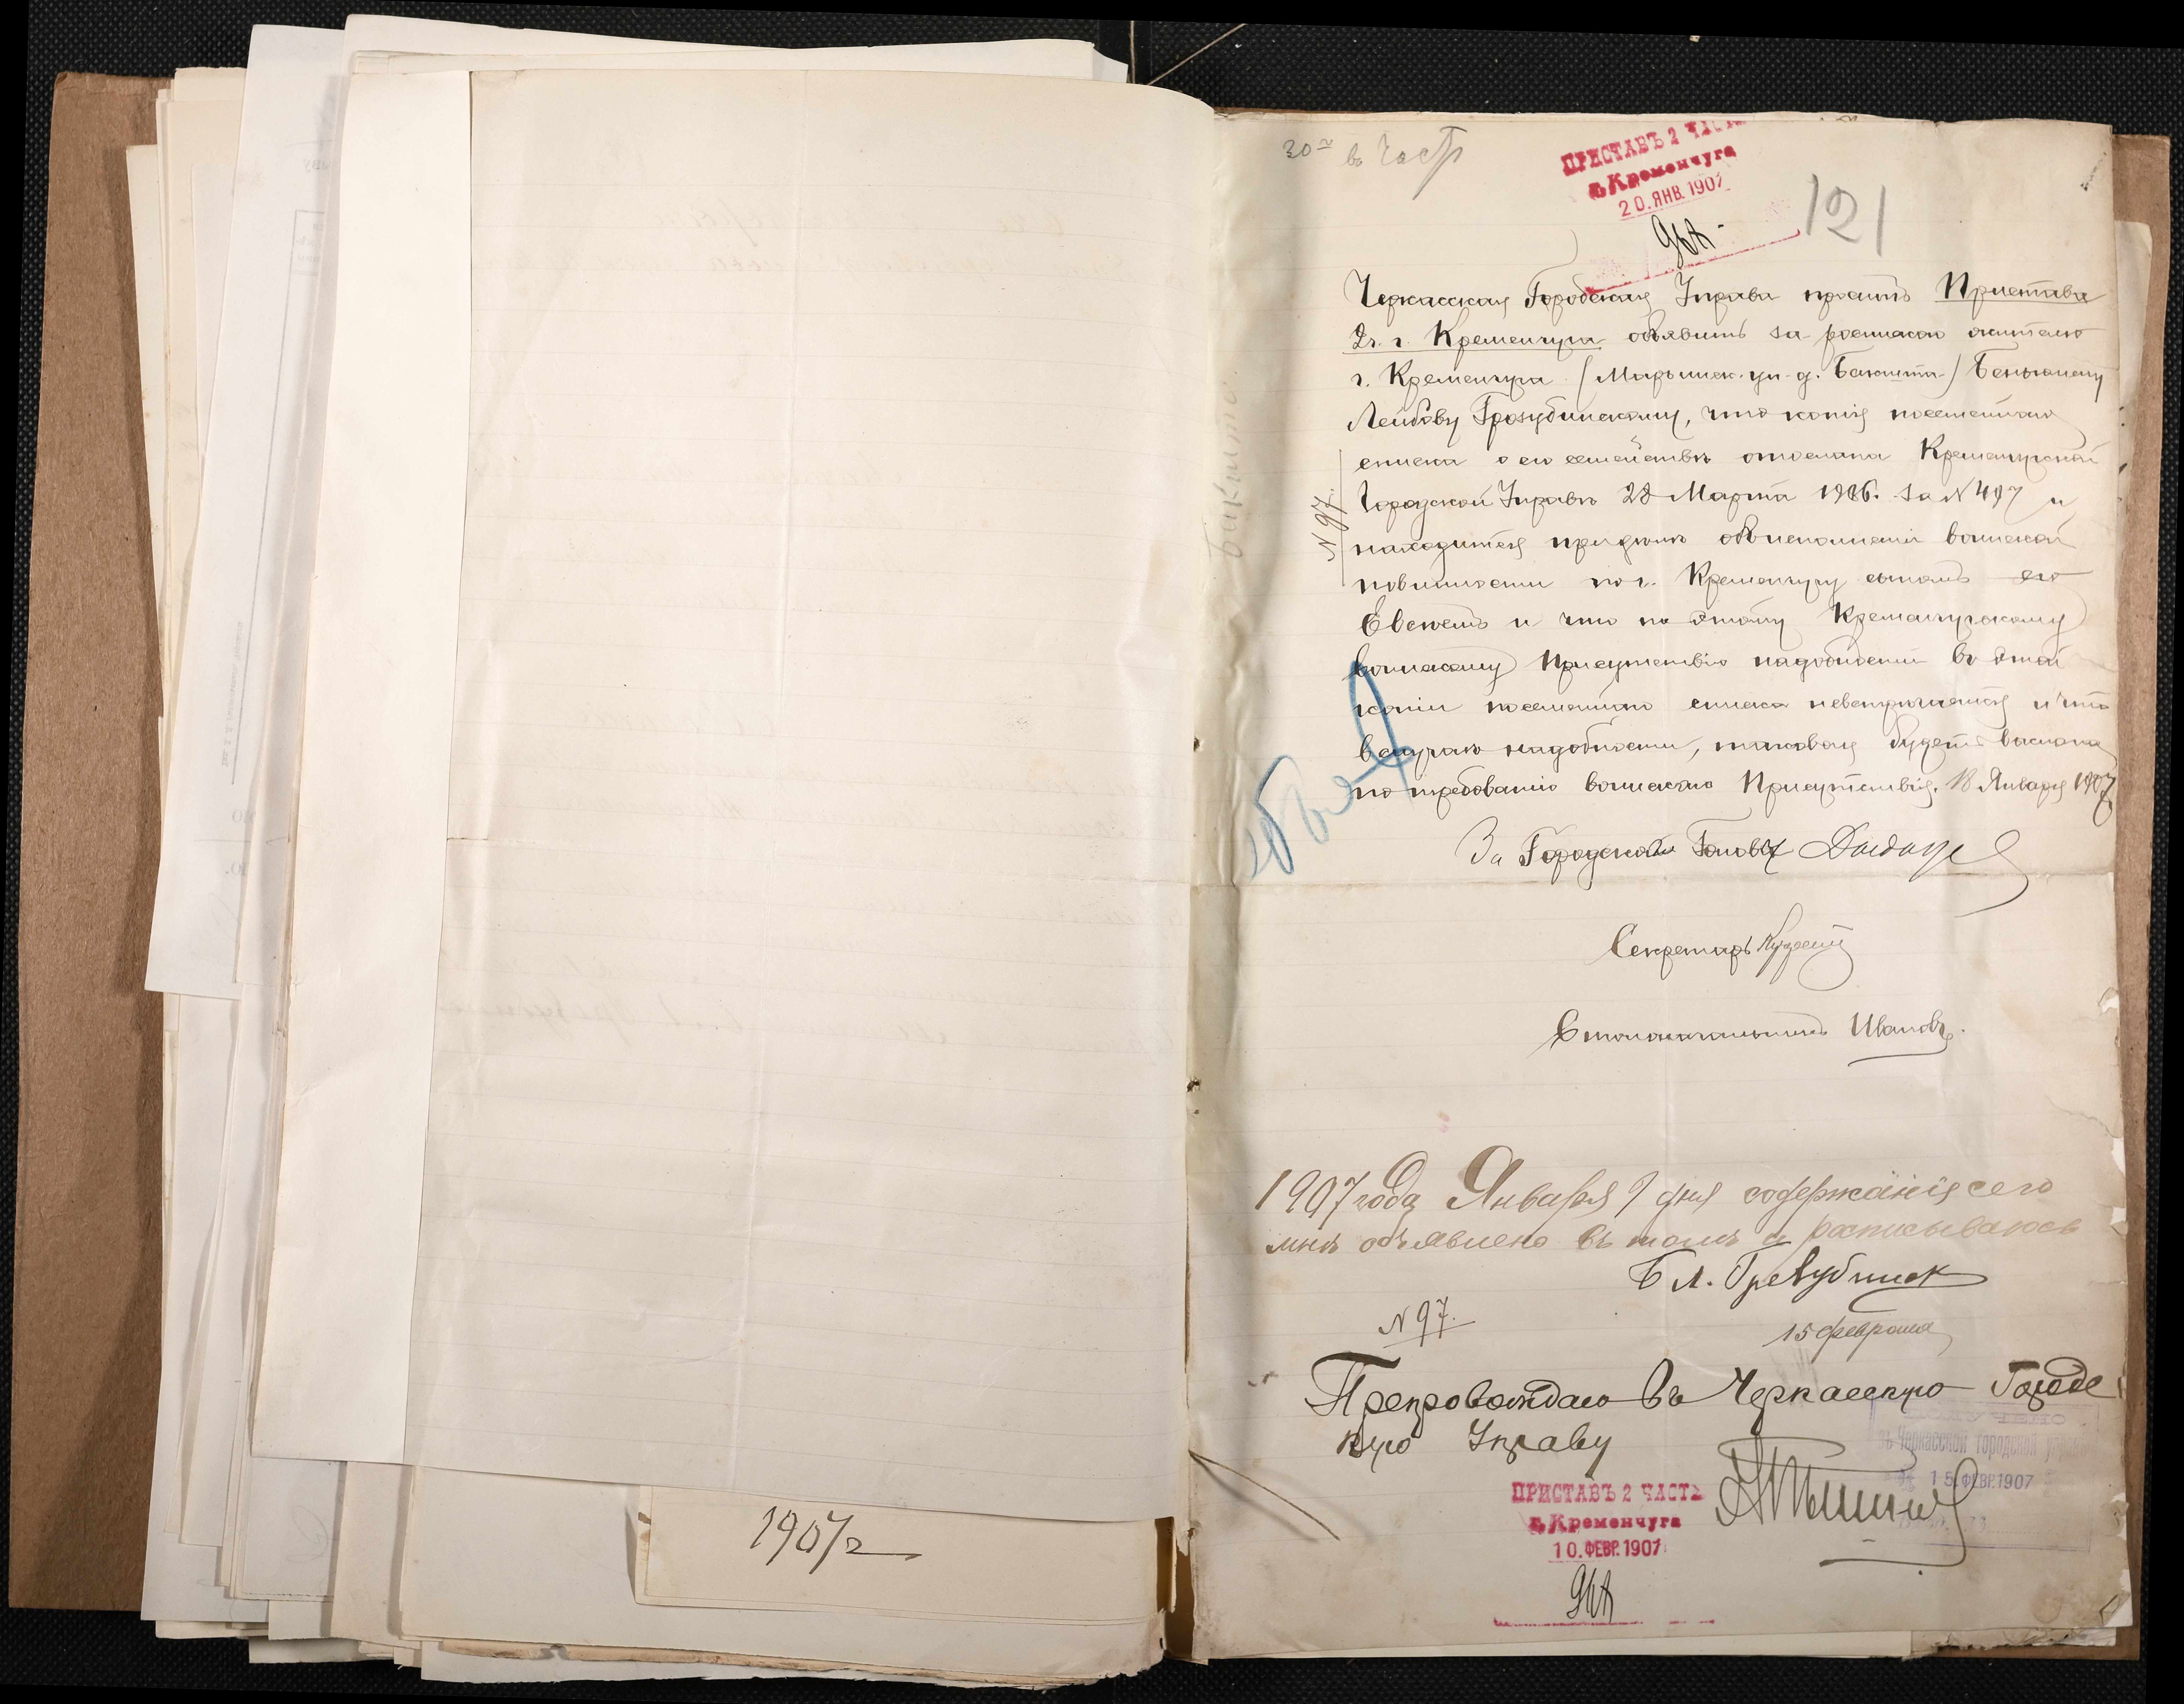 30 въ Часть
ПРИСТАВЪ 2 ЧАСТ
г. Кременчуга
20. ЯНВ. 1907
121
Черкасская Городская Управа проситъ Пристава
2 ч. г. Кременчуга объявить за роспискою жителю
г. Кременчуга (Марьинск. ул. д. Бакшта) Беньямину
Лейбову Грозубинскому, что копія посемейнаго
списка о его семействѣ отослана Кременчугской
Городской Управѣ 28 Марта 1906. за № 497 и
находится при дѣлѣ объ исполненіи воинской
повинности по г. Кременчугу сыномъ его
и что по этому Кременчугскому
воинскому Присутствію надобности въ этой
копіи посемейнаго списка невстрѣчается и что
въ случаѣ надобности, таковая будетъ выслана
по требованію воинскаго Присутствія. 18 Января 1907
№ 97.
За Городского Голову
Секретарь
Столоначальникъ Ивановъ.
1907 года Января 9 дня содержаніе сего
мнѣ объявлено въ томъ и росписываюсь
Б Л. Грезубинск
№ 97.
15 февраля
Препровождаю въ Черкасскую Городс
кую Управу
ПОЛУЧЕНО
въ Черкасской городской управѣ
15 ФЕВР. 1907
ПРИСТАВЪ 2 ЧАСТ
г. Кременчуга
10. ФЕВР. 1907
1907 г